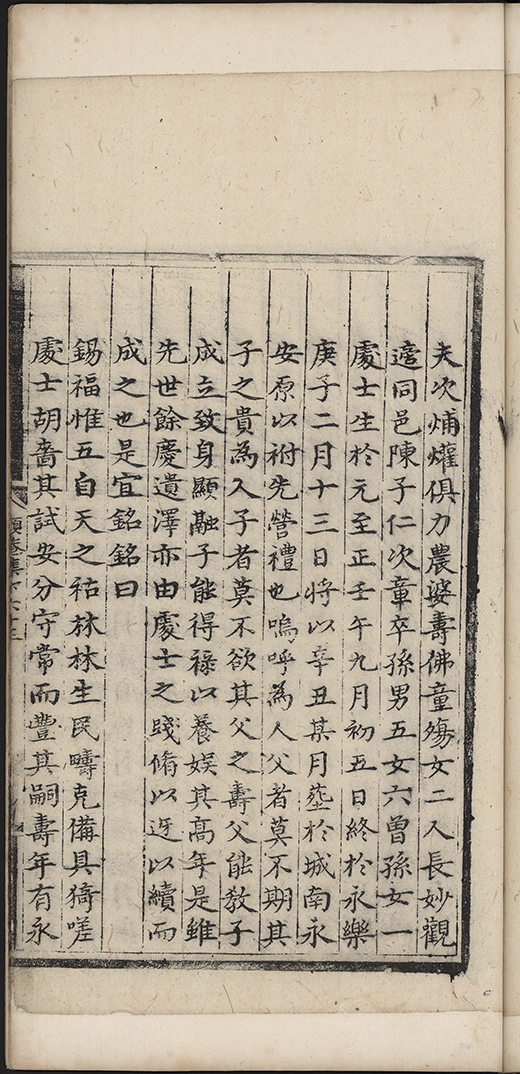 夫次㷌爟俱力農婆壽佛童殤女二人長妙觀
適同邑陳子仁次童卒孫男五女六曾孫女一
處士生於元至正壬午九月初五日終於永樂
庚子二月十三日將以辛丑某月塟於城南永
安原以祔先營禮也嗚呼為人父者莫不期其
子之貴為人子者莫不欲其父之壽父能敎子
成立致身顯融子能得祿以養娛其高年是雖
先世餘慶遺澤亦由處士之踐脩以迓以續而
成之也是宜銘銘曰
錫福惟五自天之祜林林生民疇克備具猗嗟
處士胡嗇其試安分守常而豐其嗣壽年有永
頤菴集